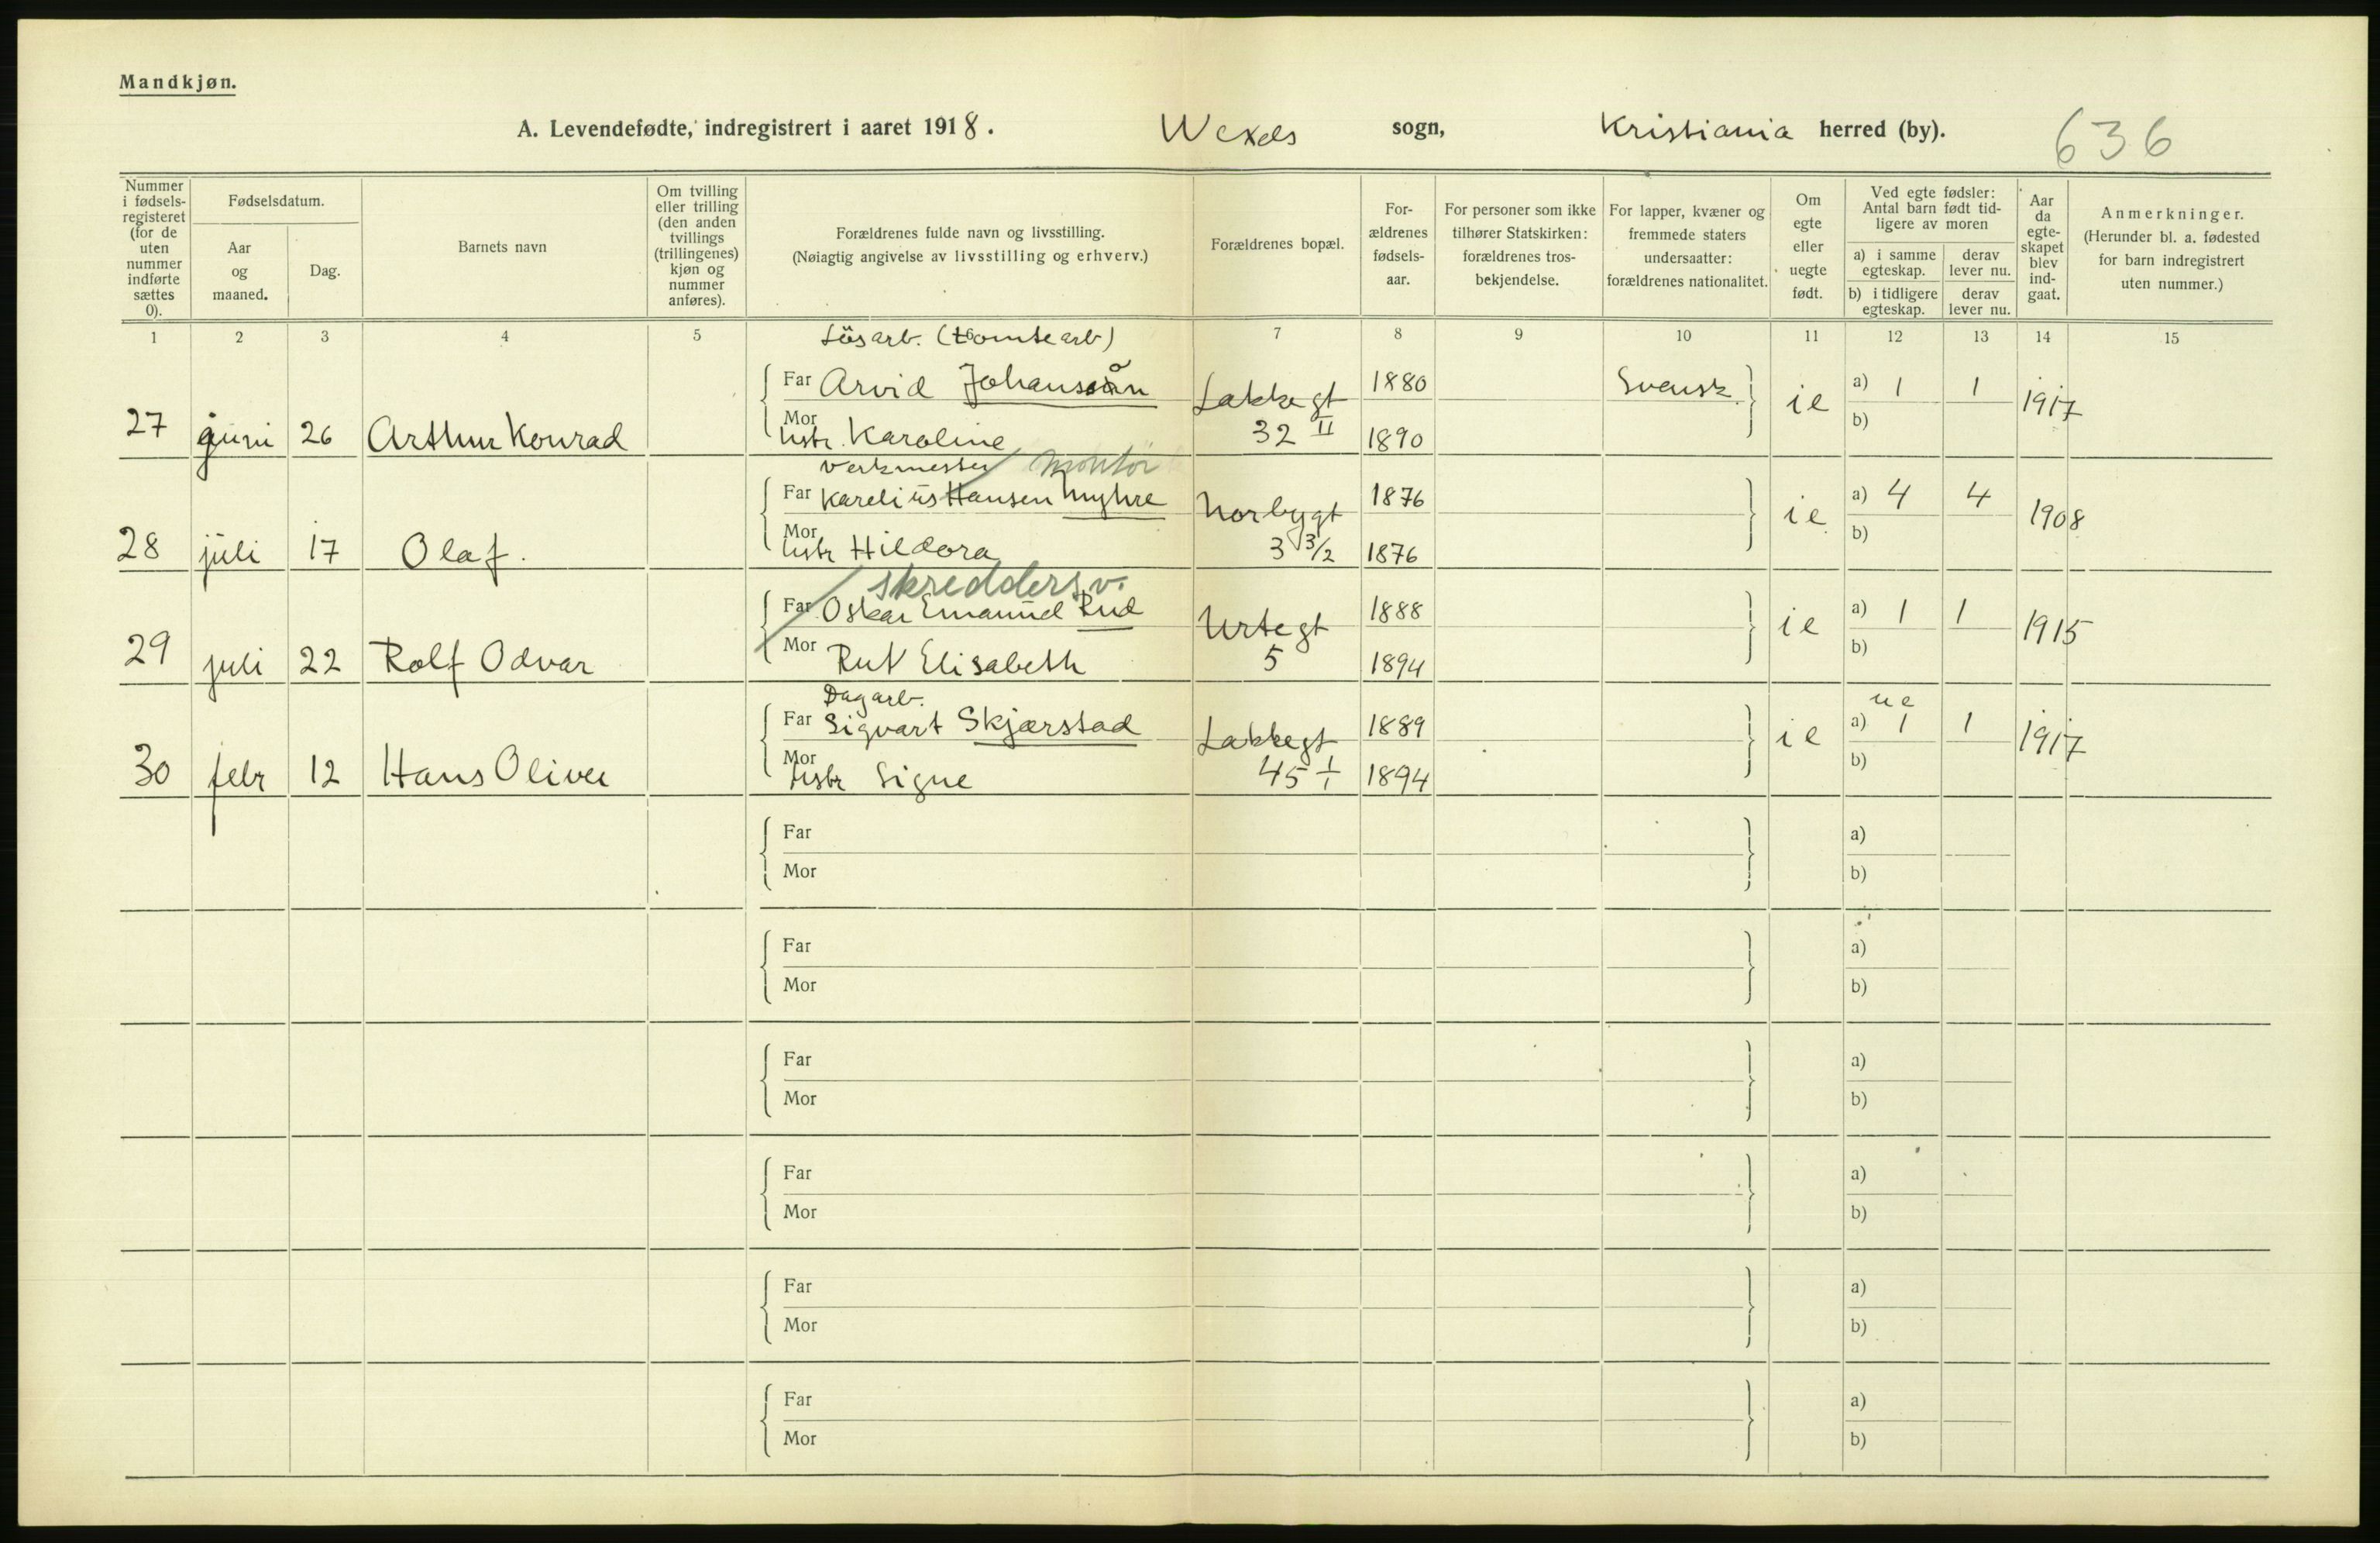 Mandkjøn.
A. Levendefødte, indregistrert i aaret 1918. Wexels sogn, Kristiania herred (by). 636
Nummer i fødsels-registeret (for de uten nummer indførte sættes 0).
Fødselsdatum.
Aar og maaned.
Dag.
Barnets navn
Om tvilling eller trilling (den anden tvillings (trillingenes) kjøn og nummer anføres).
Forældrenes fulde navn og livsstilling.
(Nøiagtig angivelse av livsstilling og erhverv.)
Forældrenes bopæl.
For-ældrenes fødsels-aar.
For personer som ikke tilhører Statskirken: forældrenes tros-bekjendelse.
For lapper, kvæner og fremmede staters undersaatter: forældrenes nationalitet.
Om egte eller uegte født.
Ved egte fødsler: Antal barn født tid-ligere av moren
a) i samme egteskap. derav lever nu.
b) i tidligere egteskap. derav lever nu.
Aar da egte-skapet blev ind-gaat.
Anmerkninger.
(Herunder bl. a. fødested for barn indregistrert uten nummer.)
1 2 3 4 5 7 8 9 10 11 12 13 14 15
Løsarb. (tomtearb)
Far Arvid Johansson Lakkegt 1880 Svensk a) 1 1
27 juni 26 Arthur Konrad Mor Hstr. Karoline 32 II 1890 ie b) 1917
Verkmester montør
Far Karelius Hansen Myhre Norbygt 1876 a) 4 4
28 juli 17 Olaf. Mor Hstr Hildora 3 3/2 1876 ie b) 1908
skreddersv.
Far Oskar Emanuel Rud Urtegt 1888 a) 1 1
29 juli 22 Rolf Odvar Mor Rut Elisabeth 5 1894 ie b) 1915
Dagarb. ue
Far Sigvart Skjærstad Lakkegt 1889 a) 1 1
30 febr 12 Hans Oliver Mor Hstr Signe 45 1/1 1894 ie b) 1917
Far a)
Mor b)
Far a)
Mor b)
Far a)
Mor b)
Far a)
Mor b)
Far a)
Mor b)
Far a)
Mor b)